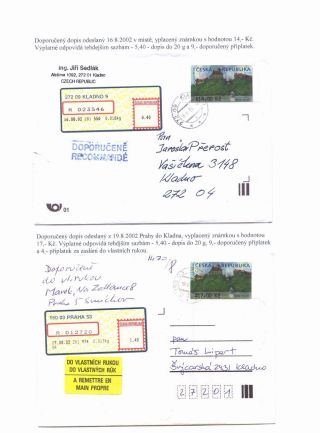 Doporučený dopis odeslaný 16.8.2002 v místě, vyplacený známkou s hodnotou 14,- Kč.
Výplatné odpovídá tehdejším sazbám - 5,40 - dopis do 20 g a 9,- doporučený příplatek.
Ing. Jiří Sedlák
272 01 Kladno
CZECH REPUBLIC
272 09 KLADNO 9
R 023546
DOPORUČENÉ
RECOMMANDÉ
ČESKÁ REPUBLIKA
Pan
Jaroslav Přerost
Vašíčkova 3148
Kladno
272 04
01
Doporučený dopis odeslaný z 19.8.2002 Prahy do Kladna, vyplacený známkou s hodnotou
17,- Kč. Výplatné odpovídá tehdejším sazbám - 5,40 - dopis do 20 g, 9,- doporučený příplatek
a 4,- příplatek za zaslání do vlastních rukou.
Doporučeně
do vl. rukou
Praha 5 Smíchov
PRAHA 53
R 012720
ČESKÁ REPUBLIKA
DO VLASTNÍCH RUKOU
DO VLASTNÝCH RÚK
A REMETTRE EN
MAIN PROPRE
pan
Tomáš Lipert
Švýcarská 2431 Kladno
27201